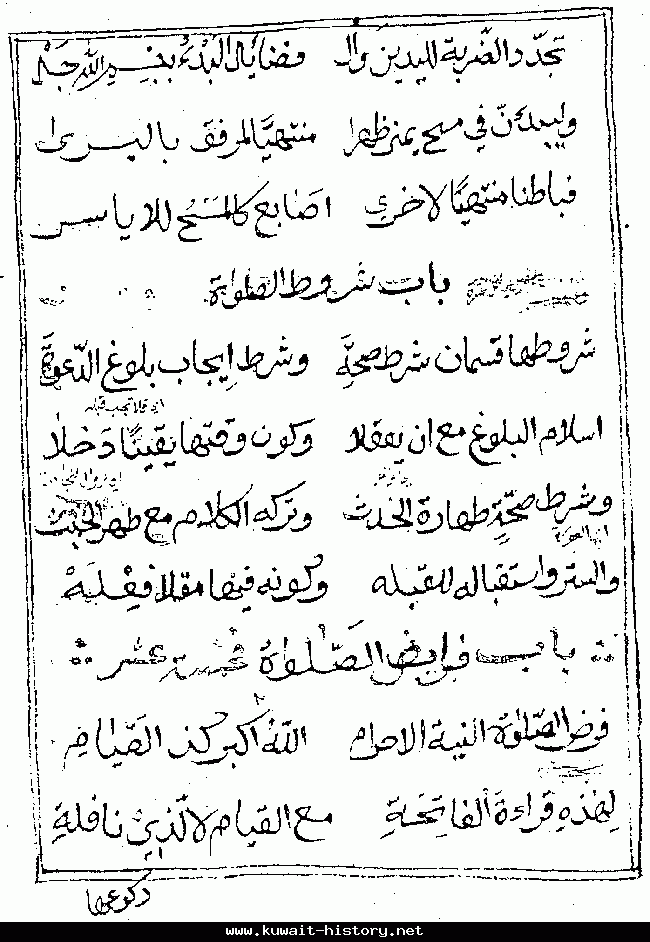 تجدّد الضّربة لليدين وال فضايل البدء ببسم الله جل
وليبدءنّ في مسح يمنى ظهرا منتهيًا لمرفق باليسرى
فباطنا منتهيًا لاخرى اصابع كالمسح للاياسر
باب شروط الصلواة
شروطها قسمان شرط صحّة وشرط إيجاب بلوغ الدّعوة
اسلام البلوغ مع ان يعقلا وكون وقتها يقينًا دخلا
وشرط صحّةٍ طهارة الحدث وتركه الكلام مع طهر الخبث
والستر واستقباله للقبله وكونه فيها مقلا فعله
باب فرايض الصّلواة خمسة عشر
فرض الصّلوة النية الاحرام الله اكبر كذا القيام
لهذه قراءة الفاتحة مع القيام لا الّذي نافلة
ركوعها
www.kuwait-history.net